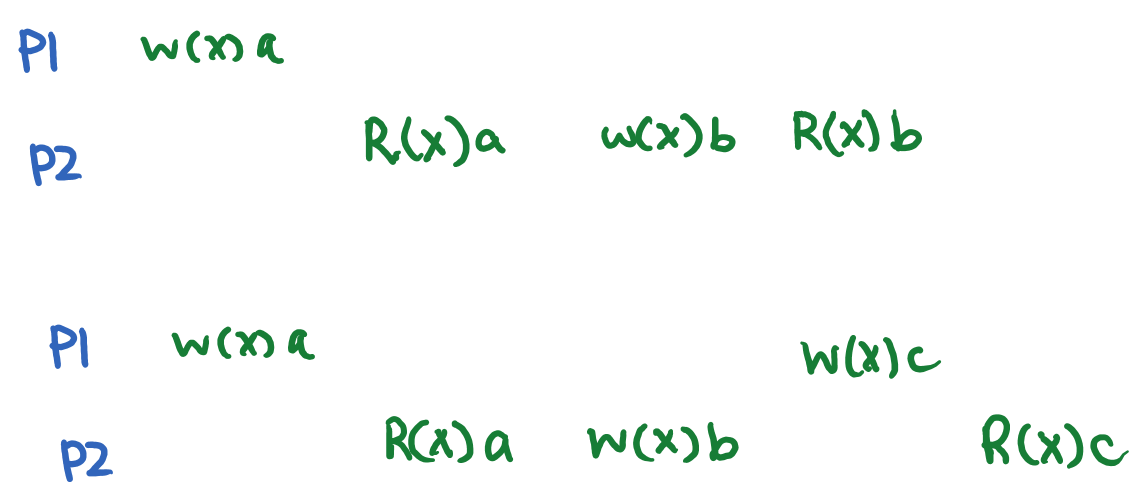 P1 w(x)a
P2 R(x)a w(x)b R(x)b
P1 w(x)a w(x)c
P2 R(x)a w(x)b R(x)c